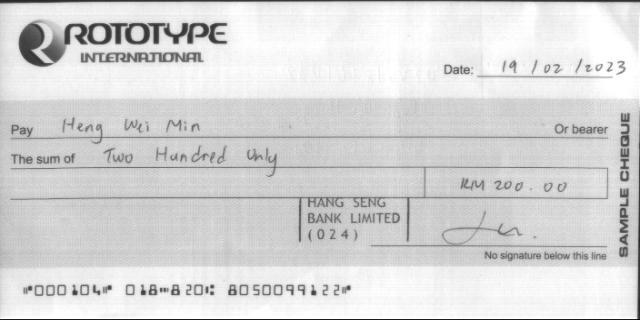 ROTOTYPE
INTERNATIONAL
Date: 19/02/2023
Pay Heng Wei Min Or bearer
The sum of Two Hundred Only
RM 200.00
HANG SENG
BANK LIMITED
(024)
No signature below this line
SAMPLE CHEQUE
⑈000104⑈ 018⑉820⑆ 8050099122⑈